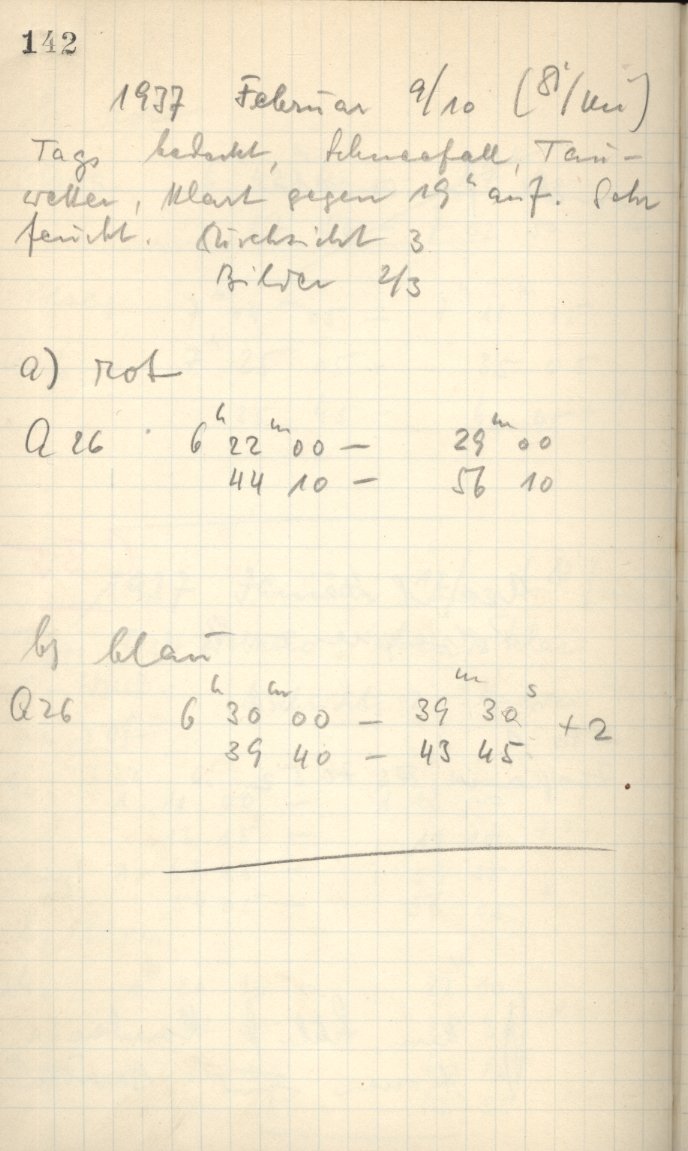 142
1937 Februar 9/10 (Si/Mü)
Tags bedeckt, Schneefall, Tau-
wetter, klart gegen 19h auf. Sehr
feucht. Durchsicht 3
Bilder 2/3
a) rot
Q 26 6h 22m 00 — 29m 00
44 10 — 56 10
b) blau
Q 26 6h 30m 00 — 39m 30s + 2
39 40 — 43 45